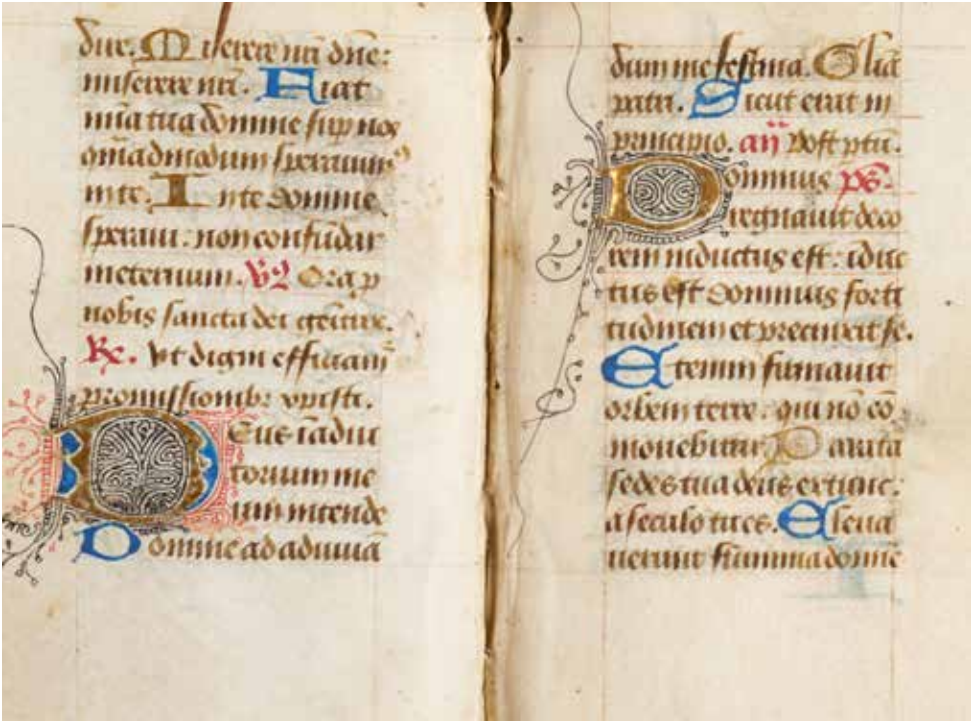 dne. Miserere nri dne:
miserere nri. Fiat
mia tua domine sup nos
quēadmodum speravim9
in te. In te domine
speravi: non confundar
in eternum. Vꝫ Ora p
nobis sancta dei genitrix.
Re. Vt digni efficiam
promissionibz xpristi.
Deus ī adiu
torium me
um intende
Domine ad adiuuā
dum me festina. Gliā
patri. Sicut erat in
principio. añ Post ptū.
Dominus ps.
regnauit deco
rem indutus est: idu
tus est dominus forti
tudinem et precinxit se.
Etenim firmauit
orbem terre: qui nō cō
mouebitur Parata
sedes tua deus ex tunc:
a seculo tu es. Eleua
uerunt flumina domīe